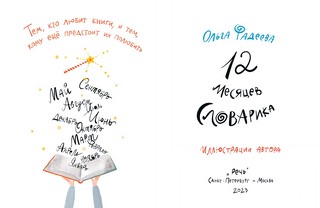 Тем, кто любит книги, и тем,
кому ещё предстоит их полюбить
Май
Сентябрь
Август
Июнь
Декабрь
Октябрь
Март
Ольга Фадеева
12
месяцев
Словарика
Иллюстрации автора
„Речь“
Санкт-Петербург – Москва
2023